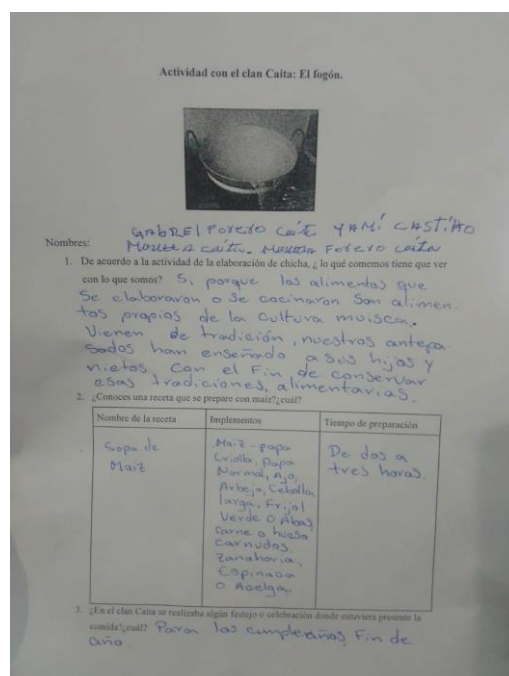 Actividad con el clan Caita: El fogón.
GAbRiEl Forero Caita YAMÍ CASTIllO
Nombres: Caita. Forero Caita
1. De acuerdo a la actividad de la elaboración de chicha, ¿ lo qué comemos tiene que ver
con lo que somos? Si, porque los alimentos que
Se elaboraron o se cocinaron Son alimen-
tos propios de la Cultura muisca.
Vienen de tradición, nuestros antepa-
sados han enseñado a sus hijos y
nietos, Con el Fin de conservar
esas tradiciones, alimentarias.
2. ¿Conoces una receta que se prepare con maíz?¿cuál?
Nombre de la receta Implementos Tiempo de preparación
Sopa de Maiz - papa De dos a
Maiz Criolla, papa tres horas.
Normal, Ajo,
Arbeja, Cebolla
larga, Frijol
Verde O Abas
Carne o hueso
Carnudos.
Zanahoria,
Espinaca
O Acelga.
3. ¿En el clan Caita se realizaba algún festejo o celebración donde estuviera presente la
comida?¿cuál? Para los cumpleaños, Fin de
año.